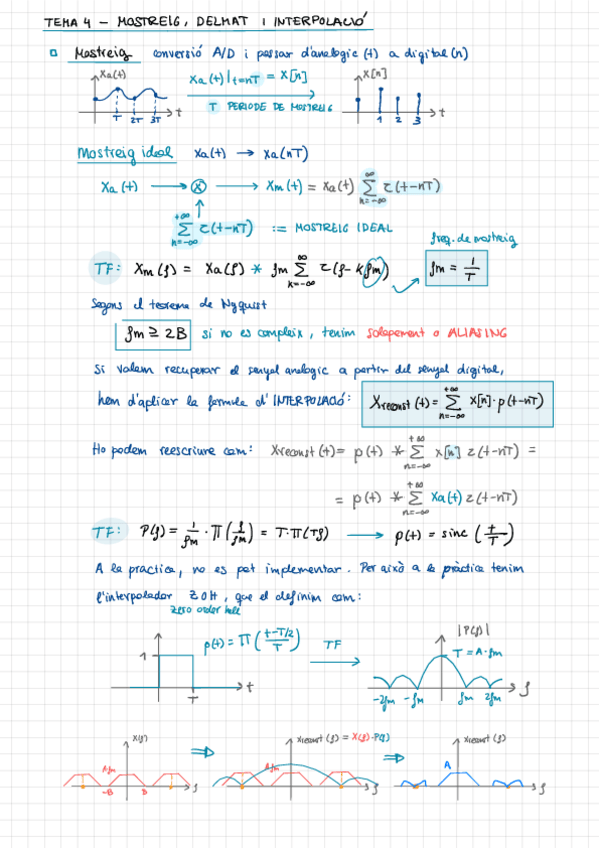 TEMA 4 - MOSTREIG, DELMAT i INTERPOLACIÓ
Mostreig conversió A/D i passar d'analogic (t) a digital (n)
Xa(t)
T 2T 3T t
Xa(t)|t=nT = X[n]
T PERIODE DE MOSTREIG
X[n]
1 2 3 t
Mostreig ideal Xa(t) → Xa(nT)
Xa(t) → ⊗ → Xm(t) = Xa(t) ∑ τ(t-nT)
∞
n=-∞
+∞
∑ τ(t-nT) := MOSTREIG IDEAL
n=-∞
freq. de mostreig
TF: Xm(f) = Xa(f) * fm ∑ τ(f-kfm)
∞
k=-∞
fm = 1/T
Segons el teorema de Nyquist
fm ≥ 2B si no es compleix, tenim solapament o ALIASING
Si volem recuperar el senyal analogic a partir del senyal digital,
hem d'aplicar la formula d'INTERPOLACIÓ: Xreconst(t) = ∑ x[n]·p(t-nT)
+∞
n=-∞
Ho podem reescriure com: Xreconst(t) = p(t) * ∑ x[n] τ(t-nT) =
+∞
n=-∞
= p(t) * ∑ Xa(t) τ(t-nT)
+∞
n=-∞
TF: P(f) = 1/fm · Π(f/fm) = T·Π(Tf) → p(t) = sinc(t/T)
A la practica, no es pot implementar. Per això a la pràctica tenim
l'interpolador ZOH, que el definim com:
zero order hold
1
T t
p(t) = Π((t-T/2)/T)
TF
|P(f)|
T = A·fm
-2fm -fm fm 2fm f
X(f)
A·fm
-B B f
⇒
Xreconst(f) = X(f)·P(f)
A·fm
f
⇒
Xreconst(f)
A
f